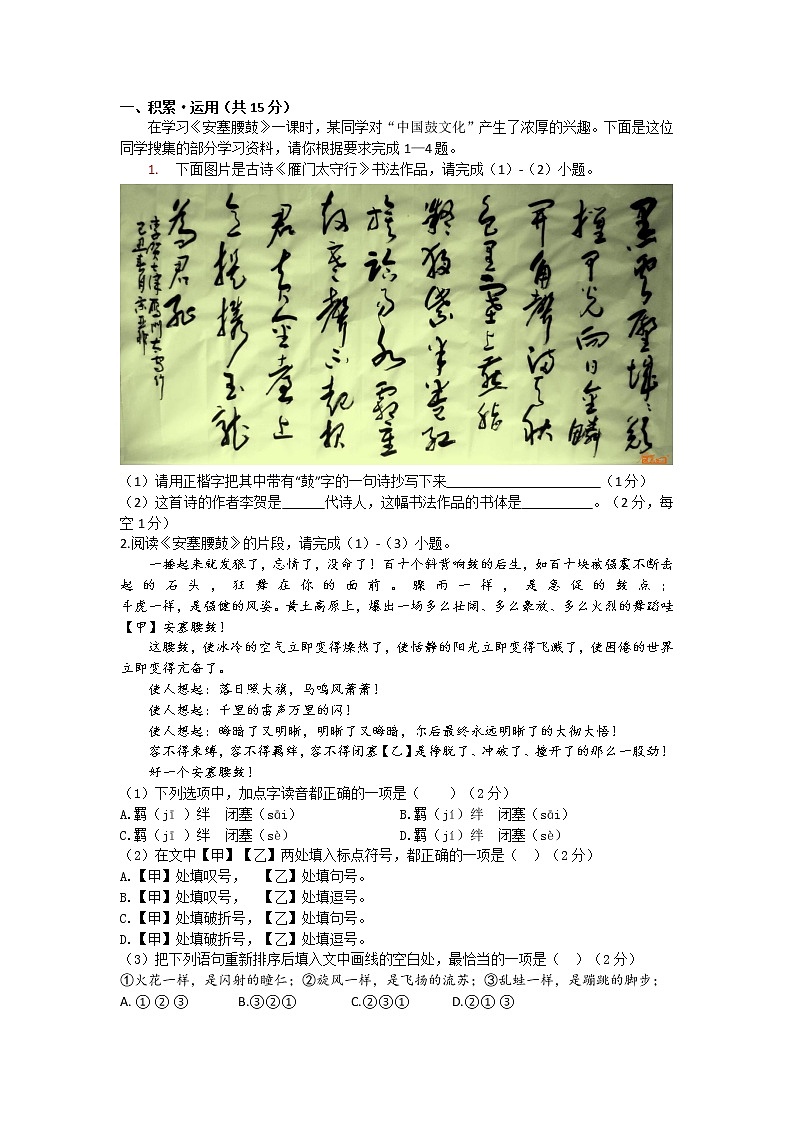 一、积累·运用（共 15 分）
在学习《安塞腰鼓》一课时，某同学对“中国鼓文化”产生了浓厚的兴趣。下面是这位
同学搜集的部分学习资料，请你根据要求完成 1—4 题。
1. 下面图片是古诗《雁门太守行》书法作品，请完成（1）-（2）小题。
黑雲壓城城欲
摧甲光向日金鱗
開角聲滿天秋
色里塞上燕脂
凝夜紫半卷紅
旗临易水霜重
鼓寒聲不起报
君黄金臺上
意提携玉龙
為君死
李贺七律雁门太守行
己丑春月
（1）请用正楷字把其中带有“鼓”字的一句诗抄写下来______________________（1 分）
（2）这首诗的作者李贺是______代诗人，这幅书法作品的书体是__________。（2 分，每
空 1 分）
2.阅读《安塞腰鼓》的片段，请完成（1）-（3）小题。
一捶起来就发狠了，忘情了，没命了！百十个斜背响鼓的后生，如百十块被强震不断击
起的石头，狂舞在你的面前。骤雨一样，是急促的鼓点；
千虎一样，是强健的风姿。黄土高原上，爆出一场多么壮阔、多么豪放、多么火烈的舞蹈哇
【甲】安塞腰鼓！
这腰鼓，使冰冷的空气立即变得燥热了，使恬静的阳光立即变得飞溅了，使困倦的世界
立即变得亢奋了。
使人想起：落日照大旗，马鸣风萧萧！
使人想起：千里的雷声万里的闪！
使人想起：晦暗了又明晰，明晰了又晦暗，尔后最终永远明晰了的大彻大悟！
容不得束缚，容不得羁绊，容不得闭塞【乙】是挣脱了、冲破了、撞开了的那么一股劲！
好一个安塞腰鼓！
（1）下列选项中，加点字读音都正确的一项是（ ）（2 分）
A.羁（jī ）绊 闭塞（sāi） B.羁（jí）绊 闭塞（sāi）
C.羁（jī ）绊 闭塞（sè） D.羁（jí）绊 闭塞（sè）
（2）在文中【甲】【乙】两处填入标点符号，都正确的一项是（ ）（2 分）
A.【甲】处填叹号， 【乙】处填句号。
B.【甲】处填叹号， 【乙】处填逗号。
C.【甲】处填破折号，【乙】处填句号。
D.【甲】处填破折号，【乙】处填逗号。
（3）把下列语句重新排序后填入文中画线的空白处，最恰当的一项是（ ）（2 分）
①火花一样，是闪射的瞳仁；②旋风一样，是飞扬的流苏；③乱蛙一样，是蹦跳的脚步；
A. ① ② ③ B.③②① C.②③① D.②① ③